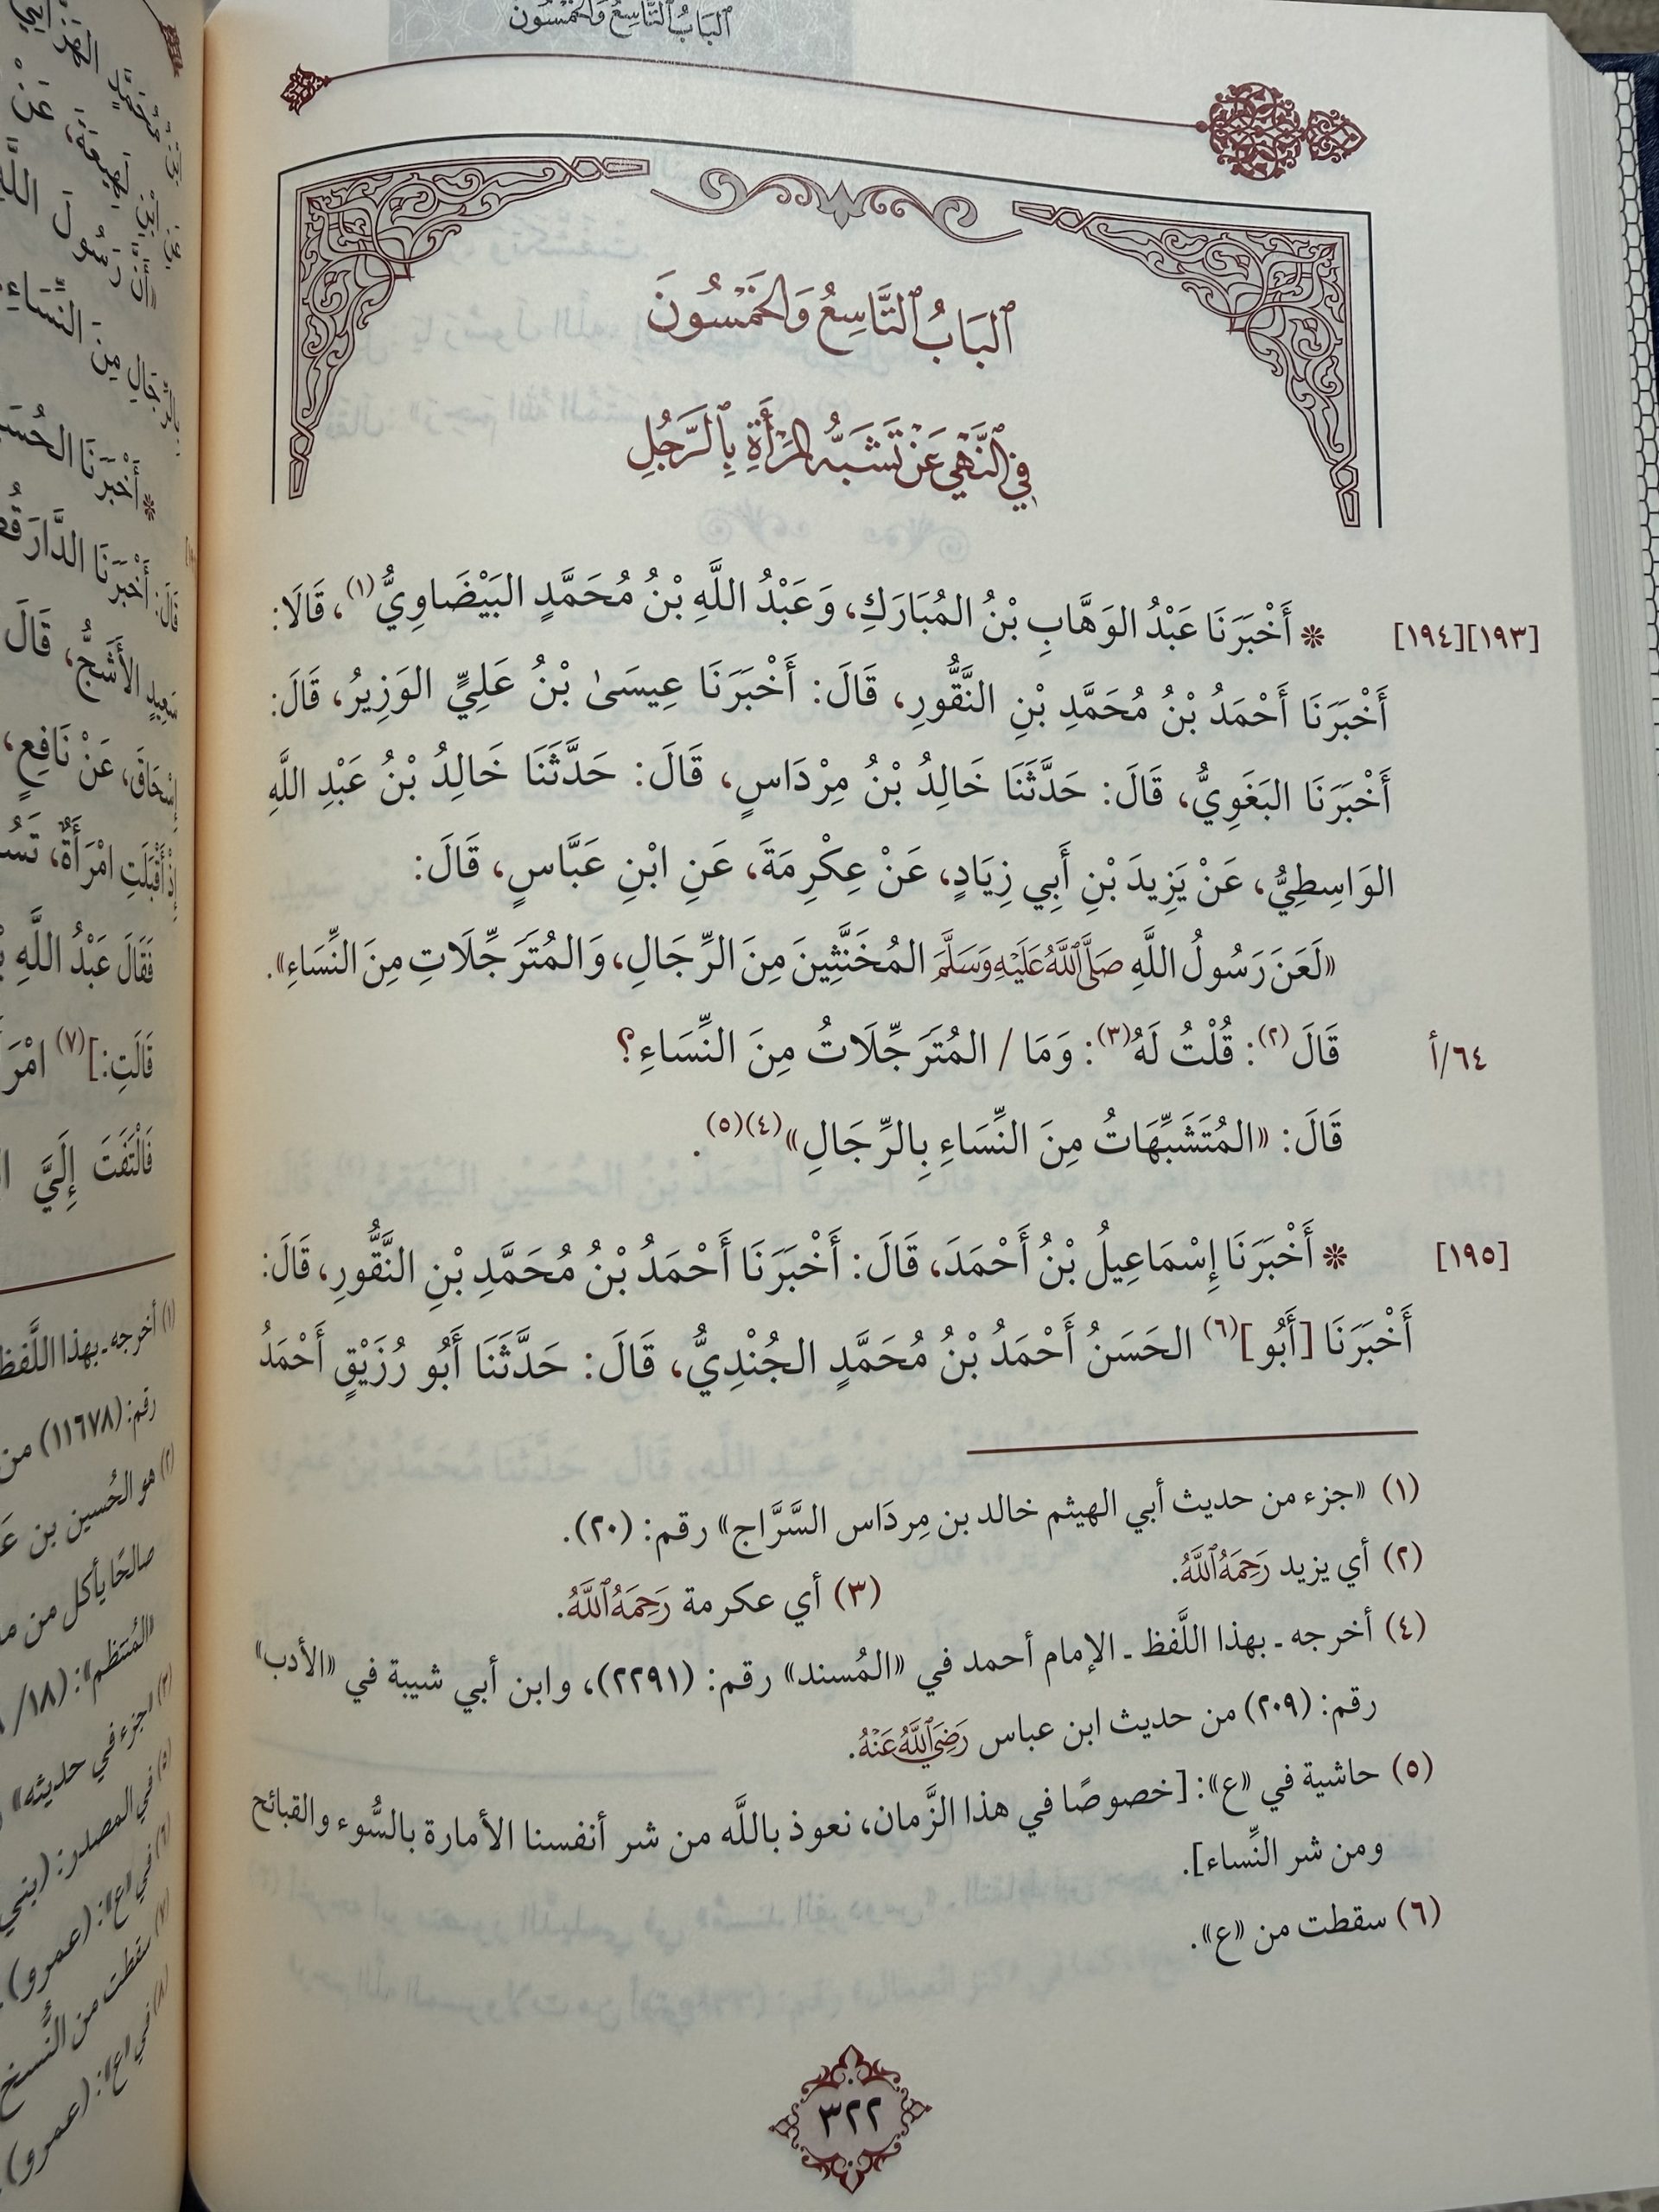 البَابُ التَّاسِعُ وَالخَمْسُونَ
البَابُ التَّاسِعُ وَالخَمْسُونَ
فِي النَّهْيِ عَنْ تَشَبُّهِ المَرْأَةِ بِالرَّجُلِ
[١٩٣][١٩٤] * أَخْبَرَنَا عَبْدُ الوَهَّابِ بْنُ المُبَارَكِ، وَعَبْدُ اللَّهِ بْنُ مُحَمَّدٍ البَيْضَاوِيُّ(١)، قَالَا:
أَخْبَرَنَا أَحْمَدُ بْنُ مُحَمَّدِ بْنِ النَّقُّورِ، قَالَ: أَخْبَرَنَا عِيسَىٰ بْنُ عَلِيٍّ الوَزِيرُ، قَالَ:
أَخْبَرَنَا البَغَوِيُّ، قَالَ: حَدَّثَنَا خَالِدُ بْنُ مِرْدَاسٍ، قَالَ: حَدَّثَنَا خَالِدُ بْنُ عَبْدِ اللَّهِ
الوَاسِطِيُّ، عَنْ يَزِيدَ بْنِ أَبِي زِيَادٍ، عَنْ عِكْرِمَةَ، عَنِ ابْنِ عَبَّاسٍ، قَالَ:
«لَعَنَ رَسُولُ اللَّهِ صَلَّى اللَّهُ عَلَيْهِ وَسَلَّمَ المُخَنَّثِينَ مِنَ الرِّجَالِ، وَالمُتَرَجِّلَاتِ مِنَ النِّسَاءِ».
٦٤/أ قَالَ(٢): قُلْتُ لَهُ(٣): وَمَا / المُتَرَجِّلَاتُ مِنَ النِّسَاءِ؟
قَالَ: «المُتَشَبِّهَاتُ مِنَ النِّسَاءِ بِالرِّجَالِ»(٤)(٥).
[١٩٥] * أَخْبَرَنَا إِسْمَاعِيلُ بْنُ أَحْمَدَ، قَالَ: أَخْبَرَنَا أَحْمَدُ بْنُ مُحَمَّدِ بْنِ النَّقُّورِ، قَالَ:
أَخْبَرَنَا [أَبُو](٦) الحَسَنُ أَحْمَدُ بْنُ مُحَمَّدٍ الجُنْدِيُّ، قَالَ: حَدَّثَنَا أَبُو رُزَيْقٍ أَحْمَدُ
(١) «جزء من حديث أبي الهيثم خالد بن مِردَاس السَّرَّاج» رقم: (٢٠).
(٢) أي يزيد رَحِمَهُ اللَّهُ.
(٣) أي عكرمة رَحِمَهُ اللَّهُ.
(٤) أخرجه ـ بهذا اللَّفظ ـ الإمام أحمد في «المُسند» رقم: (٢٢٩١)، وابن أبي شيبة في «الأدب»
رقم: (٢٠٩) من حديث ابن عباس رَضِيَ اللَّهُ عَنْهُ.
(٥) حاشية في «ع»: [خصوصًا في هذا الزَّمان، نعوذ باللَّه من شر أنفسنا الأمارة بالسُّوء والقبائح
ومن شر النِّساء].
(٦) سقطت من «ع».
٣٢٢